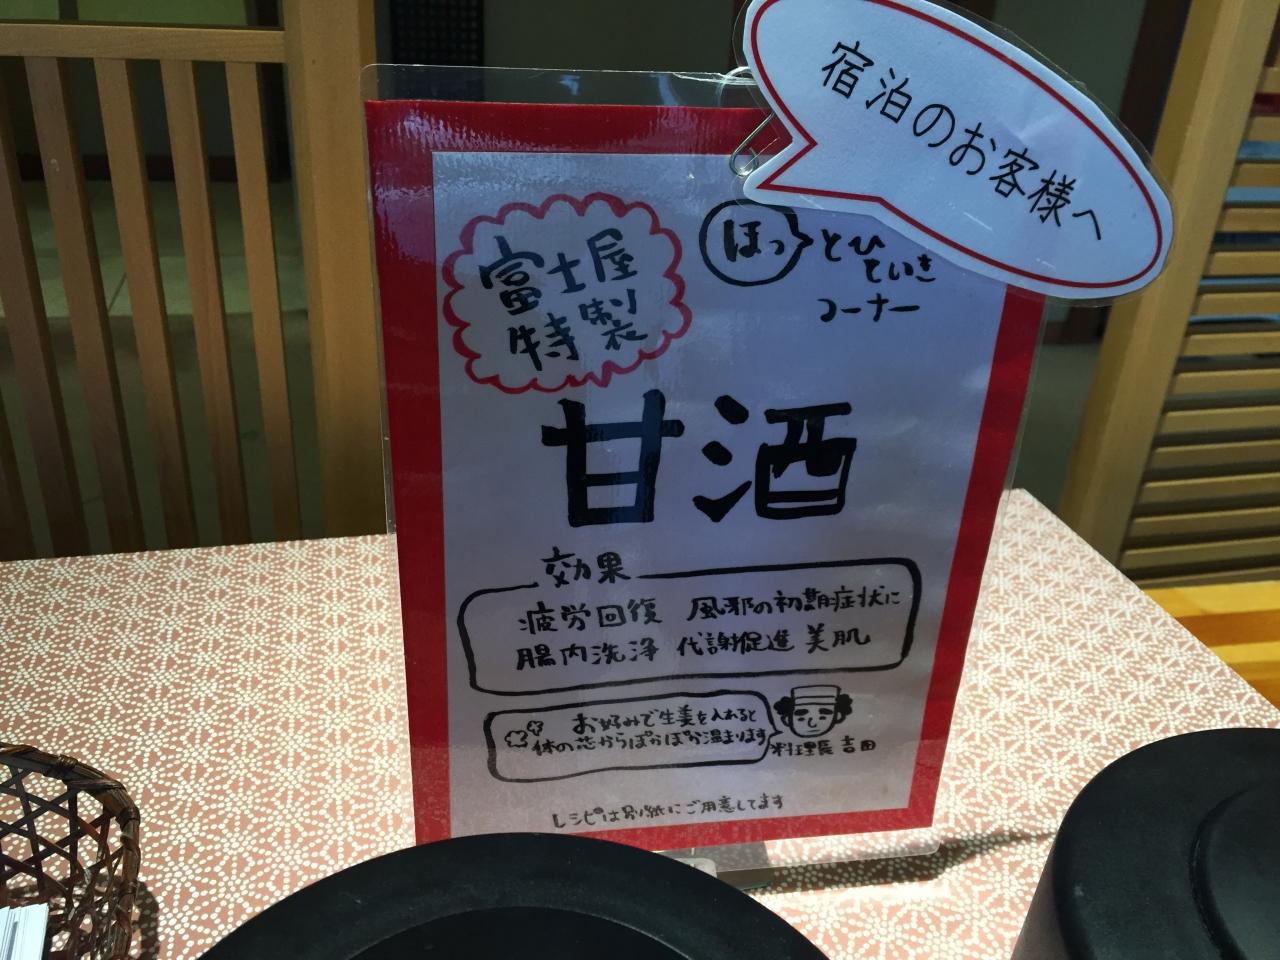 宿泊のお客様へ
ほっとひ
といき
コーナー
富士屋
特製
甘酒
効果
疲労回復 風邪の初期症状に
腸内洗浄 代謝促進 美肌
お好みで生姜を入れると
体の芯からぽかぽか温まります
料理長 吉田
レシピは別紙にご用意してます